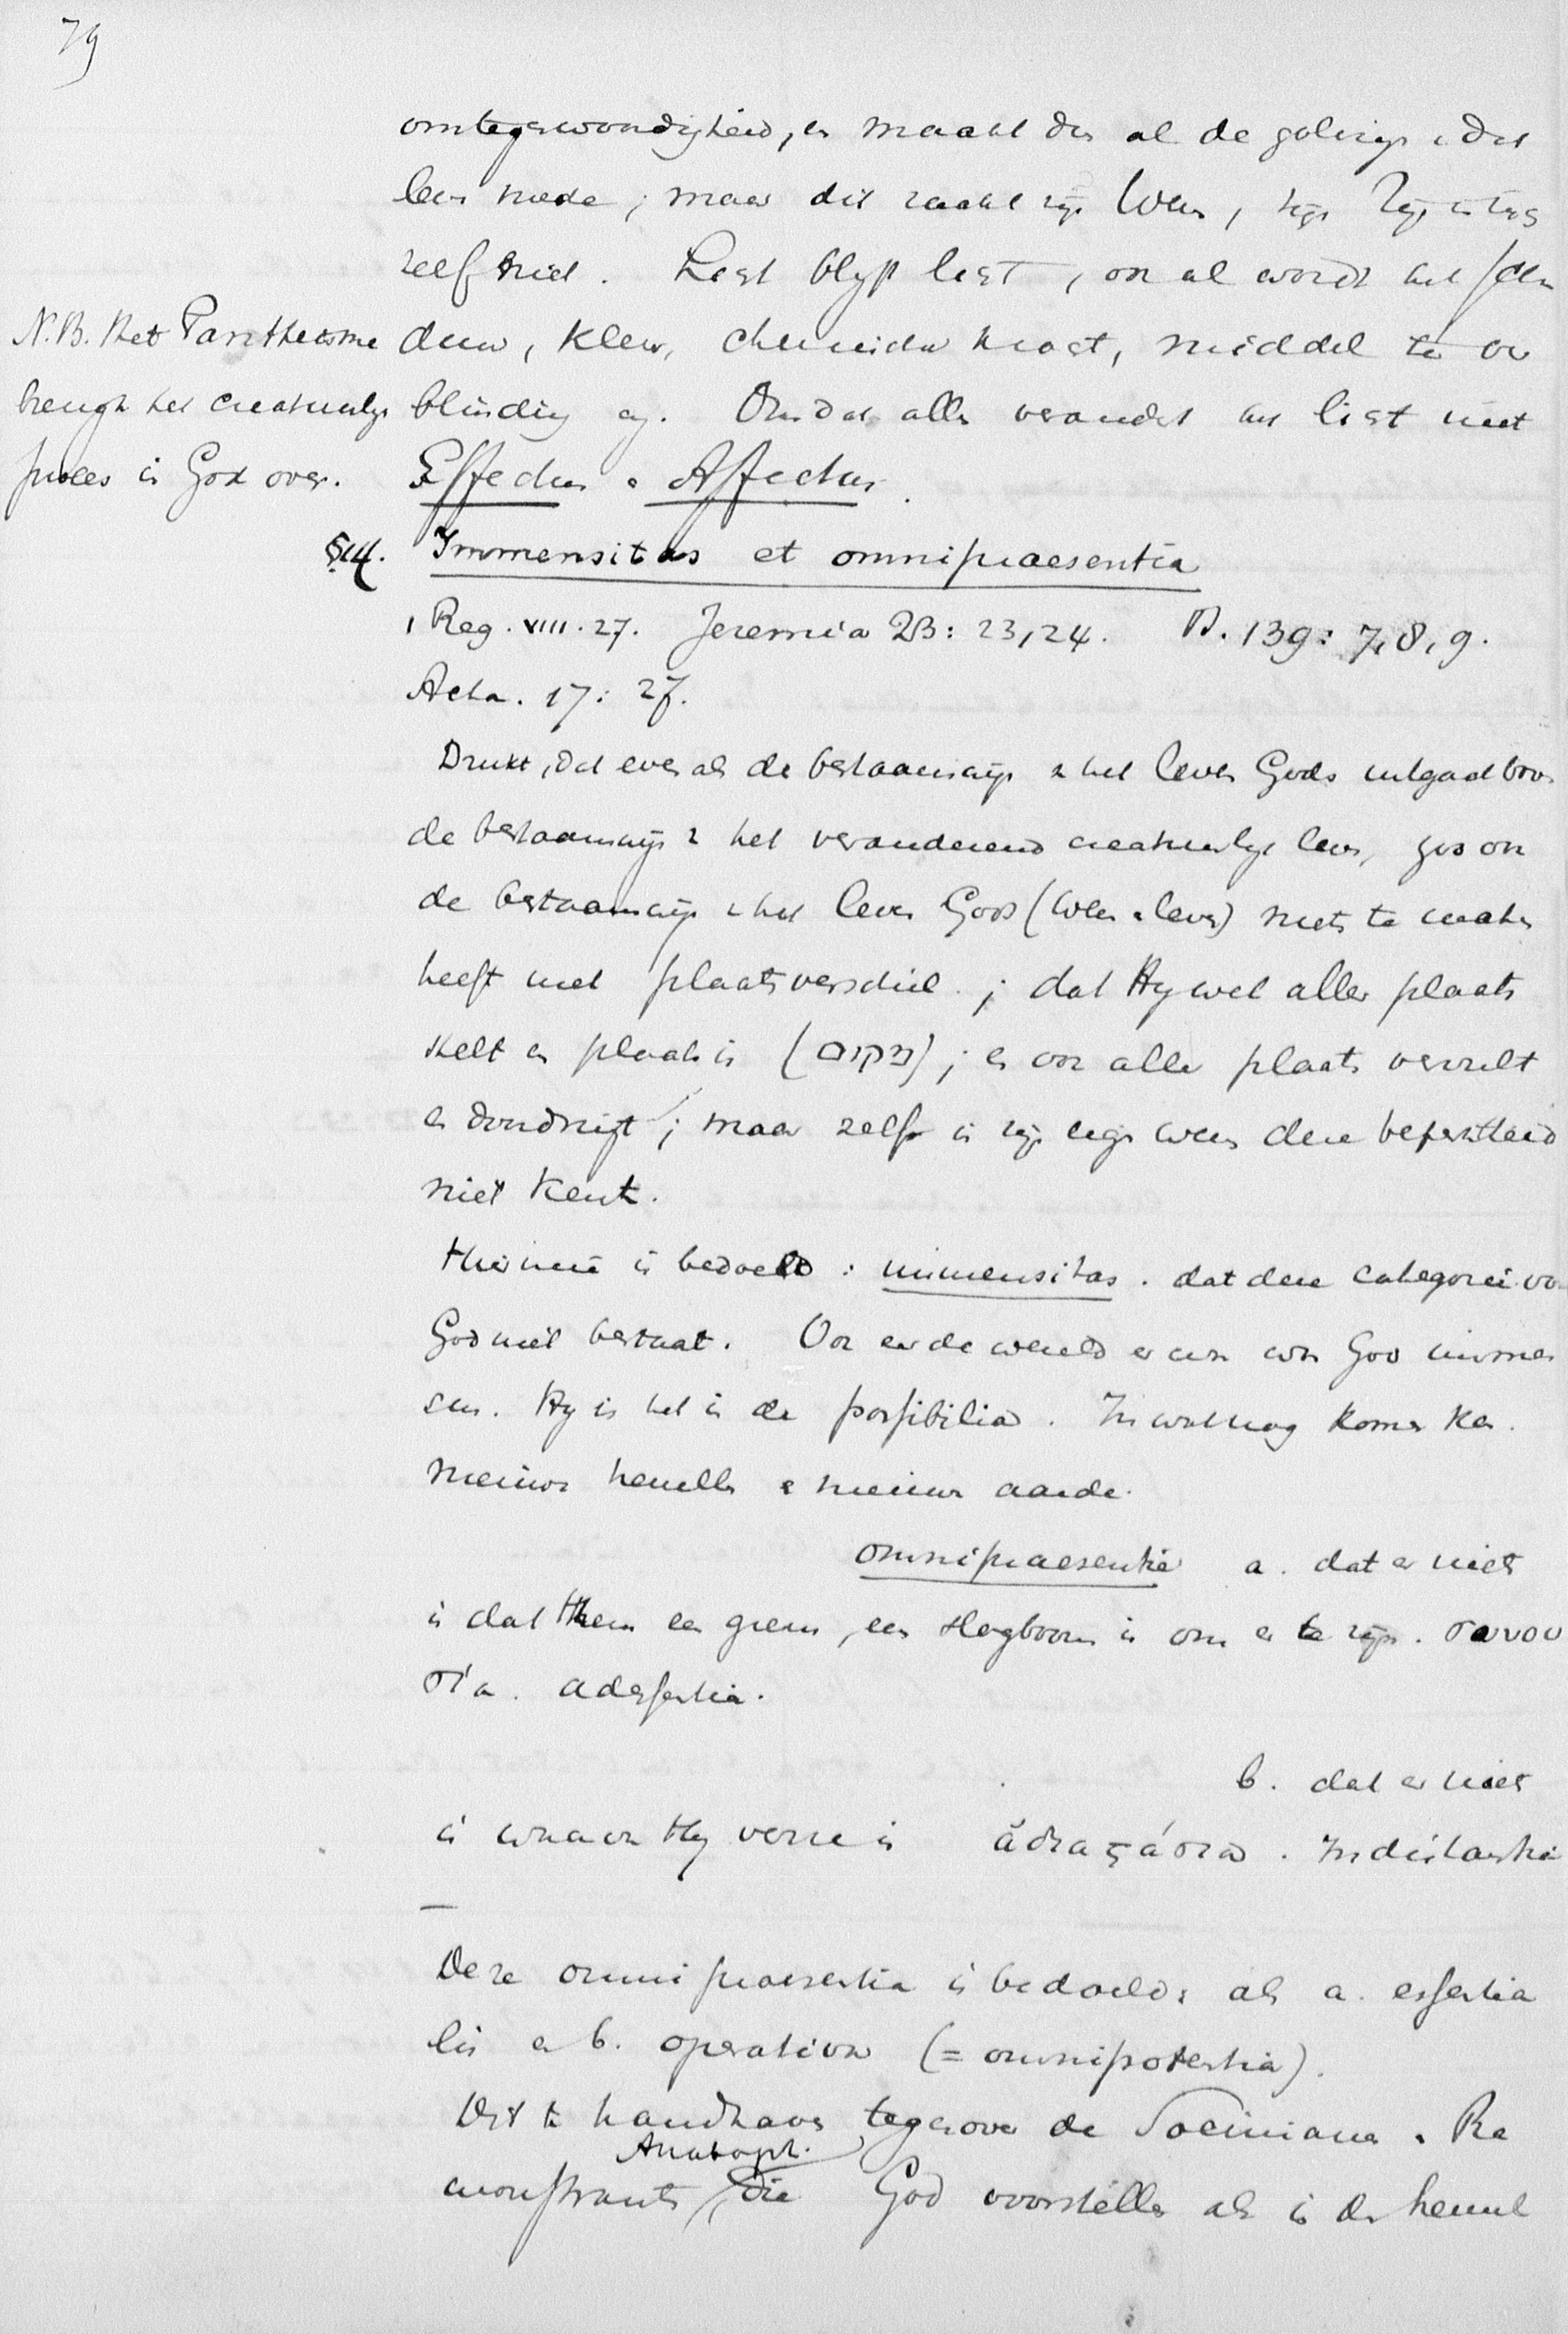 79
omtegenwoordigheid, en maakt dus al de golving v. dat
leven mede; maar dit raakt zijn Wezen, zijn
zelf niet. Licht blijft licht, ook al wordt het
N.B. Het Pantheisme
brengt het creatuurlijk
proces in God over.
kleur, chemische kracht, middel tot ver
blinding. Omdat alles verandert het licht niet
Effectus. Affectus.
§14. Immensitas et omnipraesentia
1 Reg. VIII. 27. Jeremia 23: 23, 24. Ps. 139: 7, 8, 9.
Acta. 17: 27.
Drukt, dat even als de bestaanswijs v. het leven Gods uitgaat boven
de bestaanswijs v. het veranderend creatuurlijk leven, zoo ook
de bestaanswijs v. het leven Gods (wezen. leven) niets te maken
heeft met plaatsverschil; dat Hij wel aller plaats
stelt en plaats is (מקום); en ook alle plaats vervult
en doordringt; maar zelf in zijn eigen wezen deze beperktheid
niet kent.
Hiermeê is bedoeld: immensitas. dat deze categorie voor
God niet bestaat. Ook eer de wereld er was was God immen
sus. Hij is het in de possibilia. In wat nog komen kan.
Nieuwe hemelen en nieuwe aarde.
omnipraesentia a. dat er niets
is dat Hem een grens, een slagboom is om er te zijn. συνου
σία. adessentia.
b. dat er niets
is waarvan Hij verre is ἀδιαστασία. Indistantia
—
Deze omnipraesentia is bedoeld: als a. essentia
lis en b. operativa (= omnipotentia).
Dit te handhaven tegenover de Socinianen. Re
monstranten, Anabapt. die God voorstellen als in den hemel